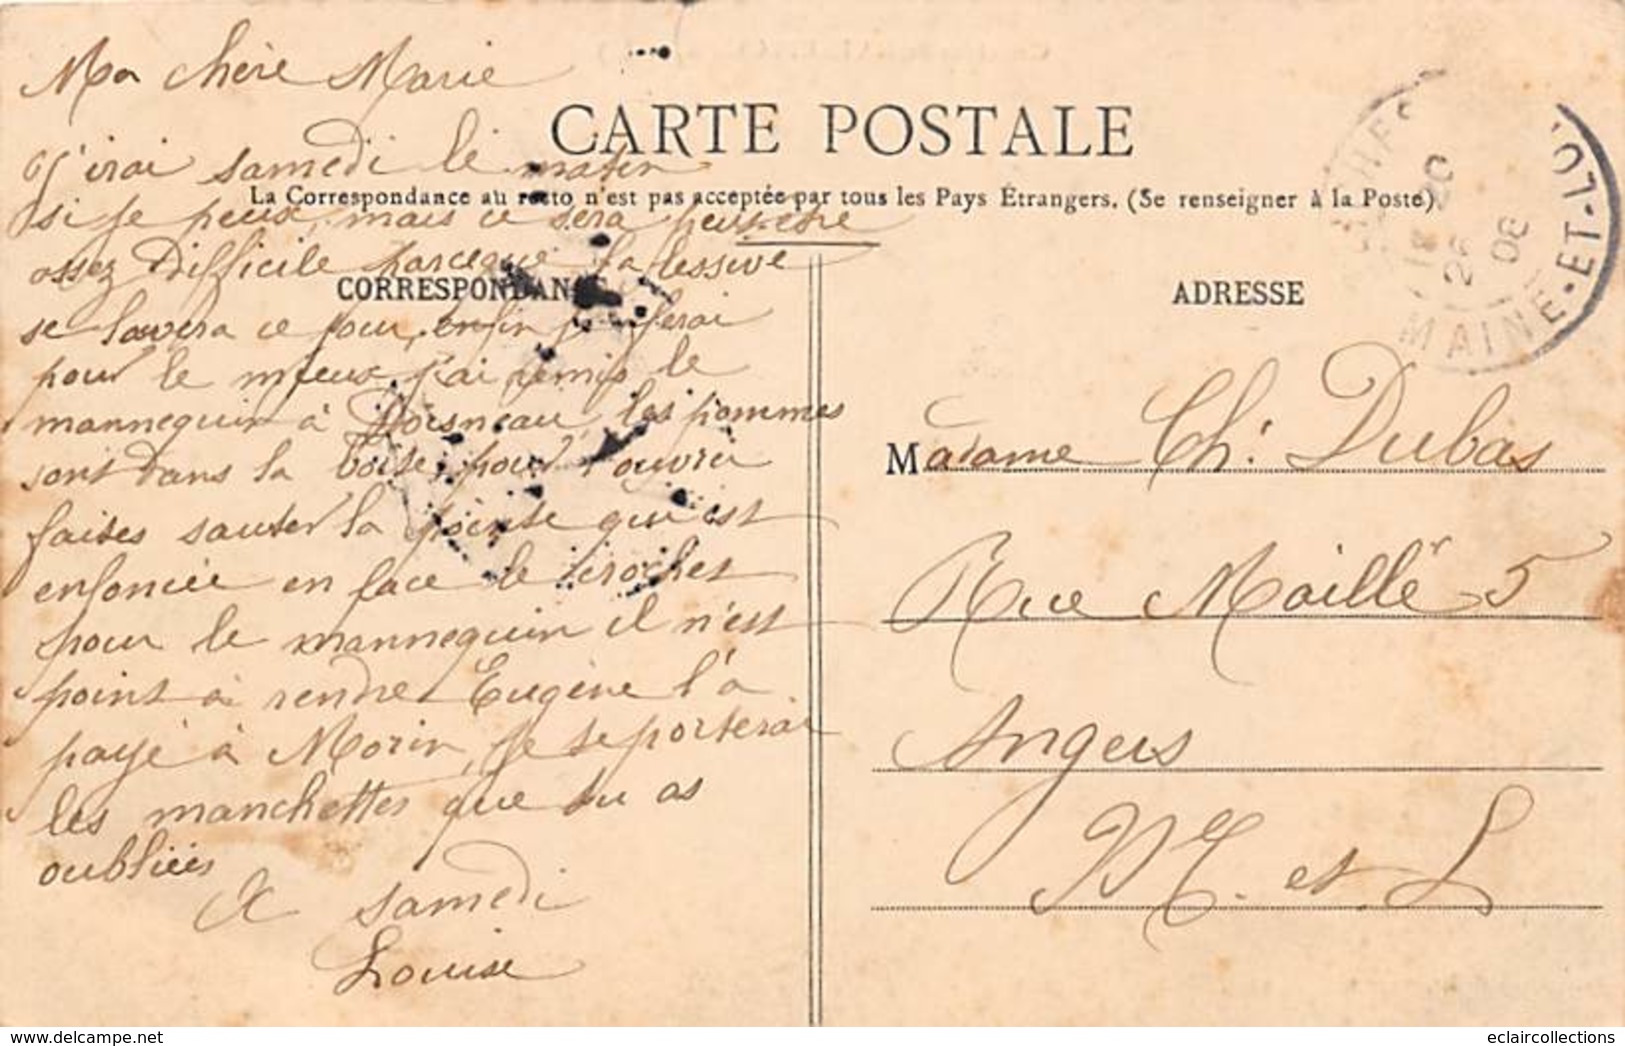 Ma chère Marie
CARTE POSTALE
J'irai samedi le matin
La Correspondance au recto n'est pas acceptée par tous les Pays Étrangers. (Se renseigner à la Poste)
si je peux, mais ce sera peut-être
assez difficile parceque la lessive
CORRESPONDANCE
ADRESSE
se lavera ce jour, enfin je ferai
pour le mieux, j'ai remis le
mannequin à Doisneau, les pommes
sont dans la boite, pour l'ouvrir
faites sauter la pointe qui est
enfoncée en face le crochet
pour le mannequin il n'est
point à rendre Eugène l'a
payé à Morin, je te porterai
les manchettes que tu as
oubliées
A samedi
Louise
Madame Ch. Dubas
Rue Maillé 5
Angers
M. et L
MAINE-ET-LOI
20
26
06
www.delcampe.net
eclaircollections